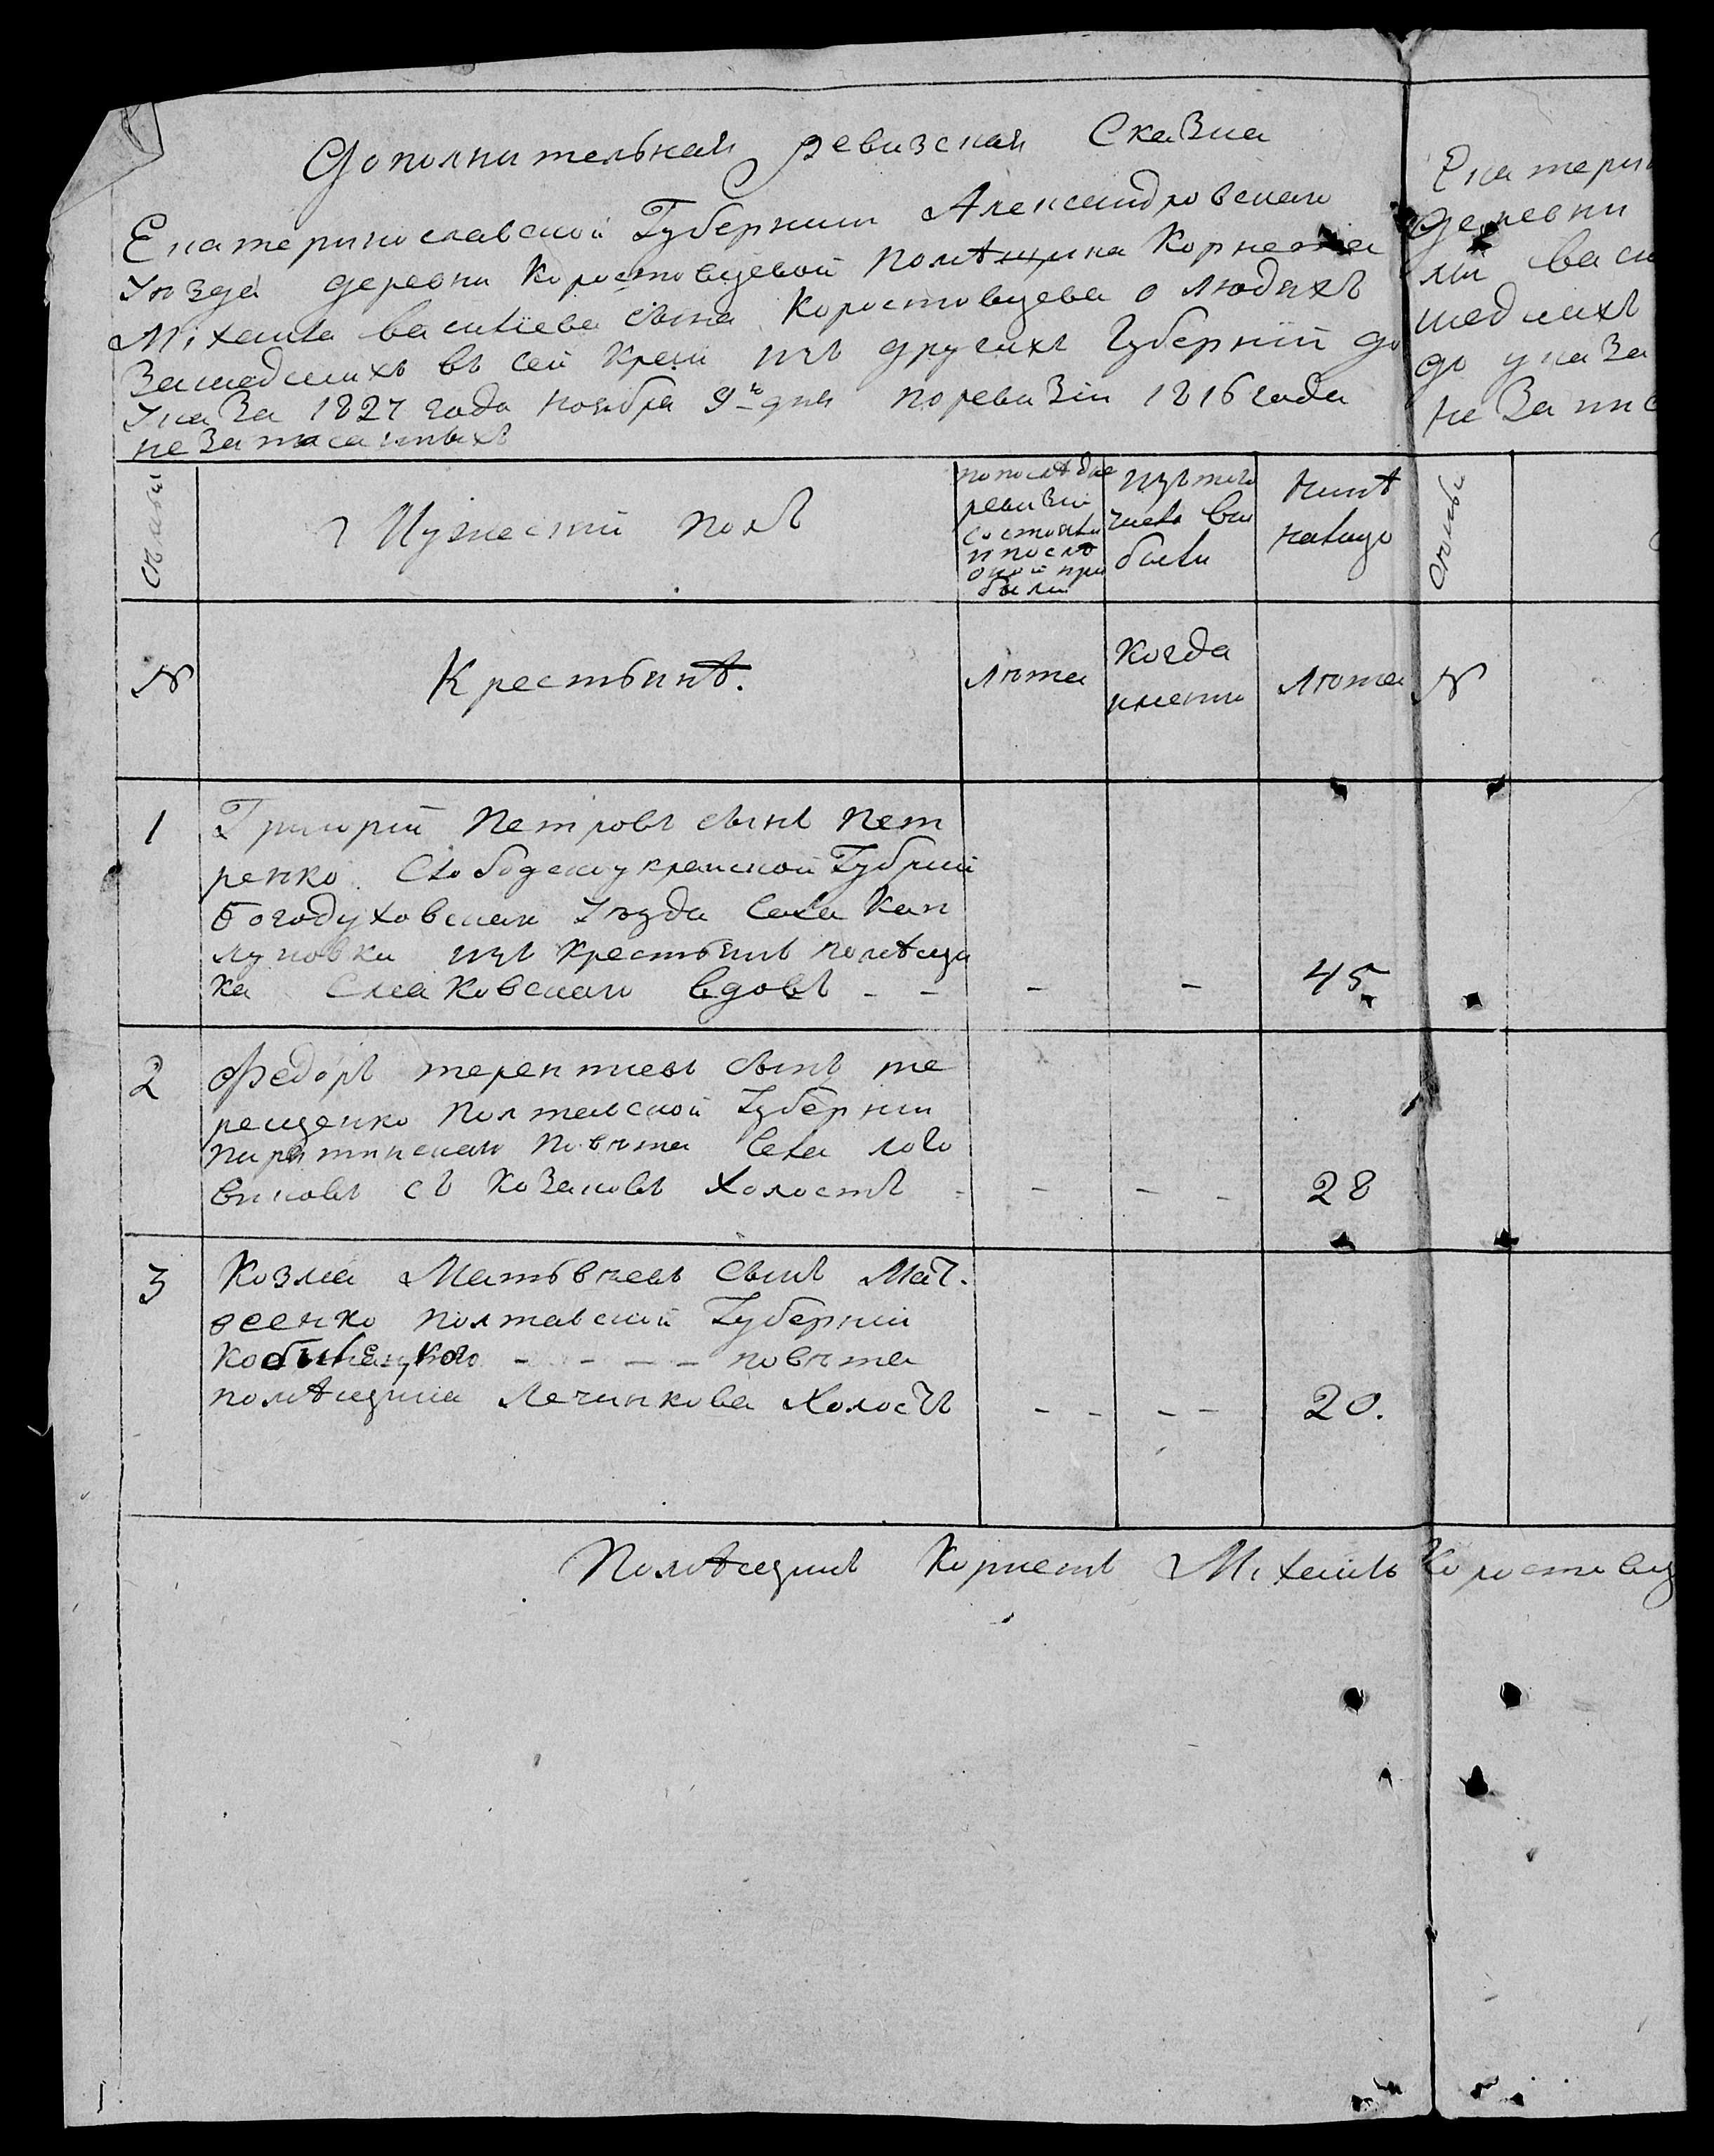 Дополнительная ревизская Сказка
Екатеринославской Губернии Александровскаго
Уѣзда деревни Коростовцевой помѣщика Корнета
Михаила васильева сына Коростовцева о людяхъ
Зашедшихъ въ сей Край изъ другихъ Губерній до
Указа 1827 года ноября 9го дня по ревизіи 1816 года
не Записанныхъ
Семьи
Мужескій полъ
по послѣдне
ревизіи
состояло
и послѣ
оной при
было
Изъ того
числа вы
было
Нынѣ
налицо
№
Крестьянѣ.
лѣта
Когда
именно
лѣта
1
Григорій Петровъ сынъ Пет
ренко Слободскоукраинской Губрнии
Богодуховскаго Уѣзда Села Кап
луновки изъ Крестьянъ помѣщи
ка вдовъ - -
-
-
45
2
Федоръ терентиевъ сынъ те
рещенко Полтавской Губернии
пирятинскаго Повѣта Села
съ Козаковъ холостъ -
-
- -
28
3
Козма Матвѣевъ сынъ Мат.
веенко полтавской Губерніи
Кобыляцкого - - - - повѣта
помѣщика Лечинкова Холостъ
- -
- -
20.
Помѣщикъ Корнетъ Михаилъ Коростовц
Екатерин
деревни
ла васи
шедшихъ
до указа
не Запис
Семьи
№